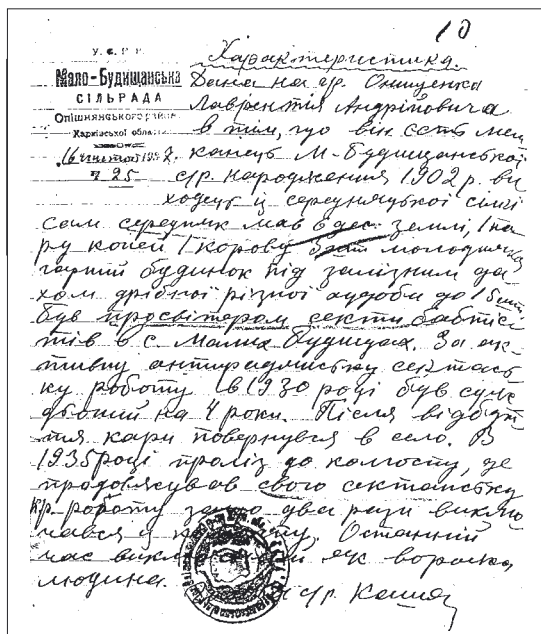 10
У. С. Р. Р.
Мало-Будищанська
СІЛЬРАДА
Опішнянського району
Харківської області
16 1937
ч 25
Характеристика.
Дана на гр. Онищенка
Лаврентія Андрійовича
в тім, що він єсть меш
канець М-Будищанської
с/р. народження 1902 р. ви
ходець із середняцької сімї
сам середняк мав 6 дес. землі, 1 па
ру коней 1 корову молодняка
гарний будинок під залізним да
хом дрібної різної худоби до 15 шт.
був просвітером секти баптис
тів в с. Малих Будищах. За ак
тивну антирадянську сектанс
ку роботу в 1930 році був суж
дений на 4 роки. Після відбут
тя кари повернувся в село. В
1935 році проліз до колгоспу, де
продовжував свого сектанську
к.р. роботу за що два рази виклю
чався з Останній
час як ворожа
людина.
с/р.